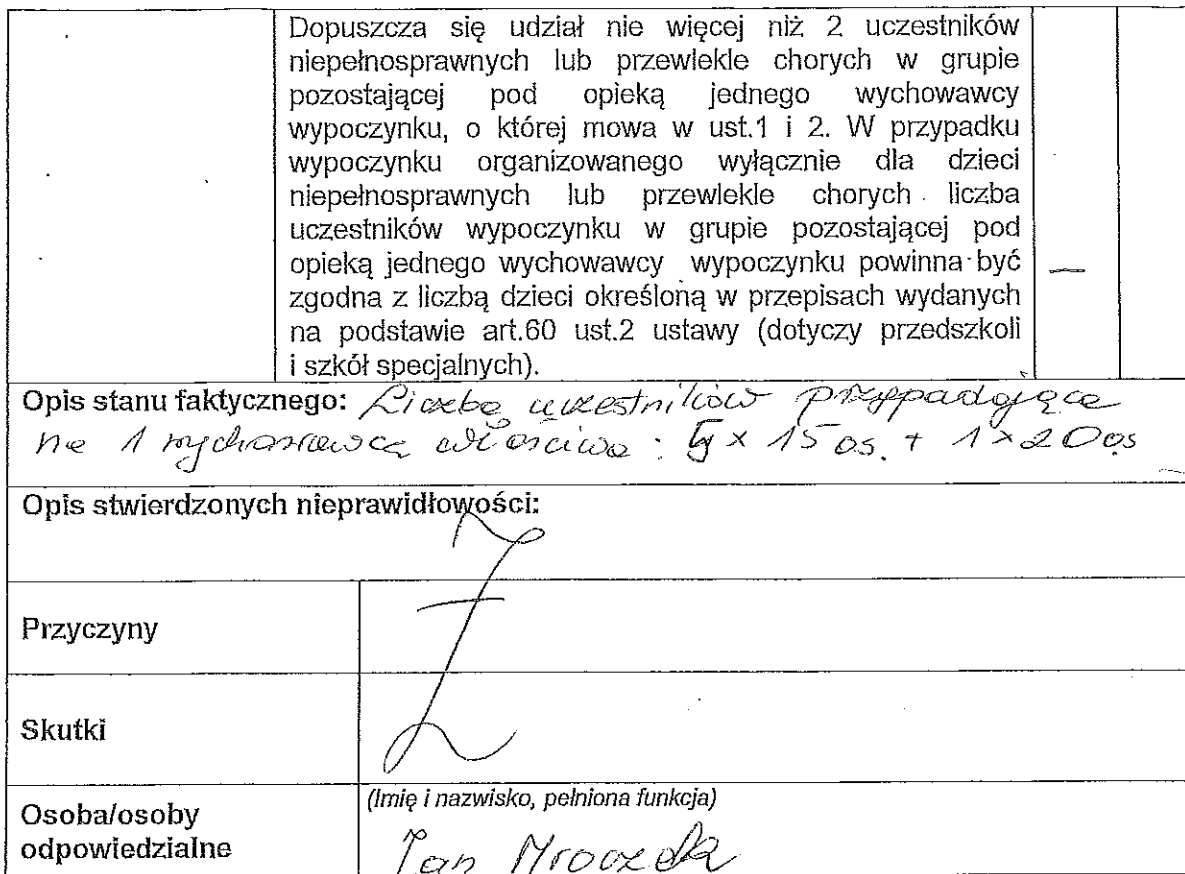 Dopuszcza się udział nie więcej niż 2 uczestników
niepełnosprawnych lub przewlekle chorych w grupie
pozostającej pod opieką jednego wychowawcy
wypoczynku, o której mowa w ust.1 i 2. W przypadku
wypoczynku organizowanego wyłącznie dla dzieci
niepełnosprawnych lub przewlekle chorych liczba
uczestników wypoczynku w grupie pozostającej pod
opieką jednego wychowawcy wypoczynku powinna być
zgodna z liczbą dzieci określoną w przepisach wydanych
na podstawie art.60 ust.2 ustawy (dotyczy przedszkoli
i szkół specjalnych).
Opis stanu faktycznego: Liczba uczestników przypadająca
na 1 wychowawcę właściwa: x 15 os. + 1 x 20 os
Opis stwierdzonych nieprawidłowości:
Przyczyny
Skutki
Osoba/osoby
odpowiedzialne
(Imię i nazwisko, pełniona funkcja)
Jan Mroczek